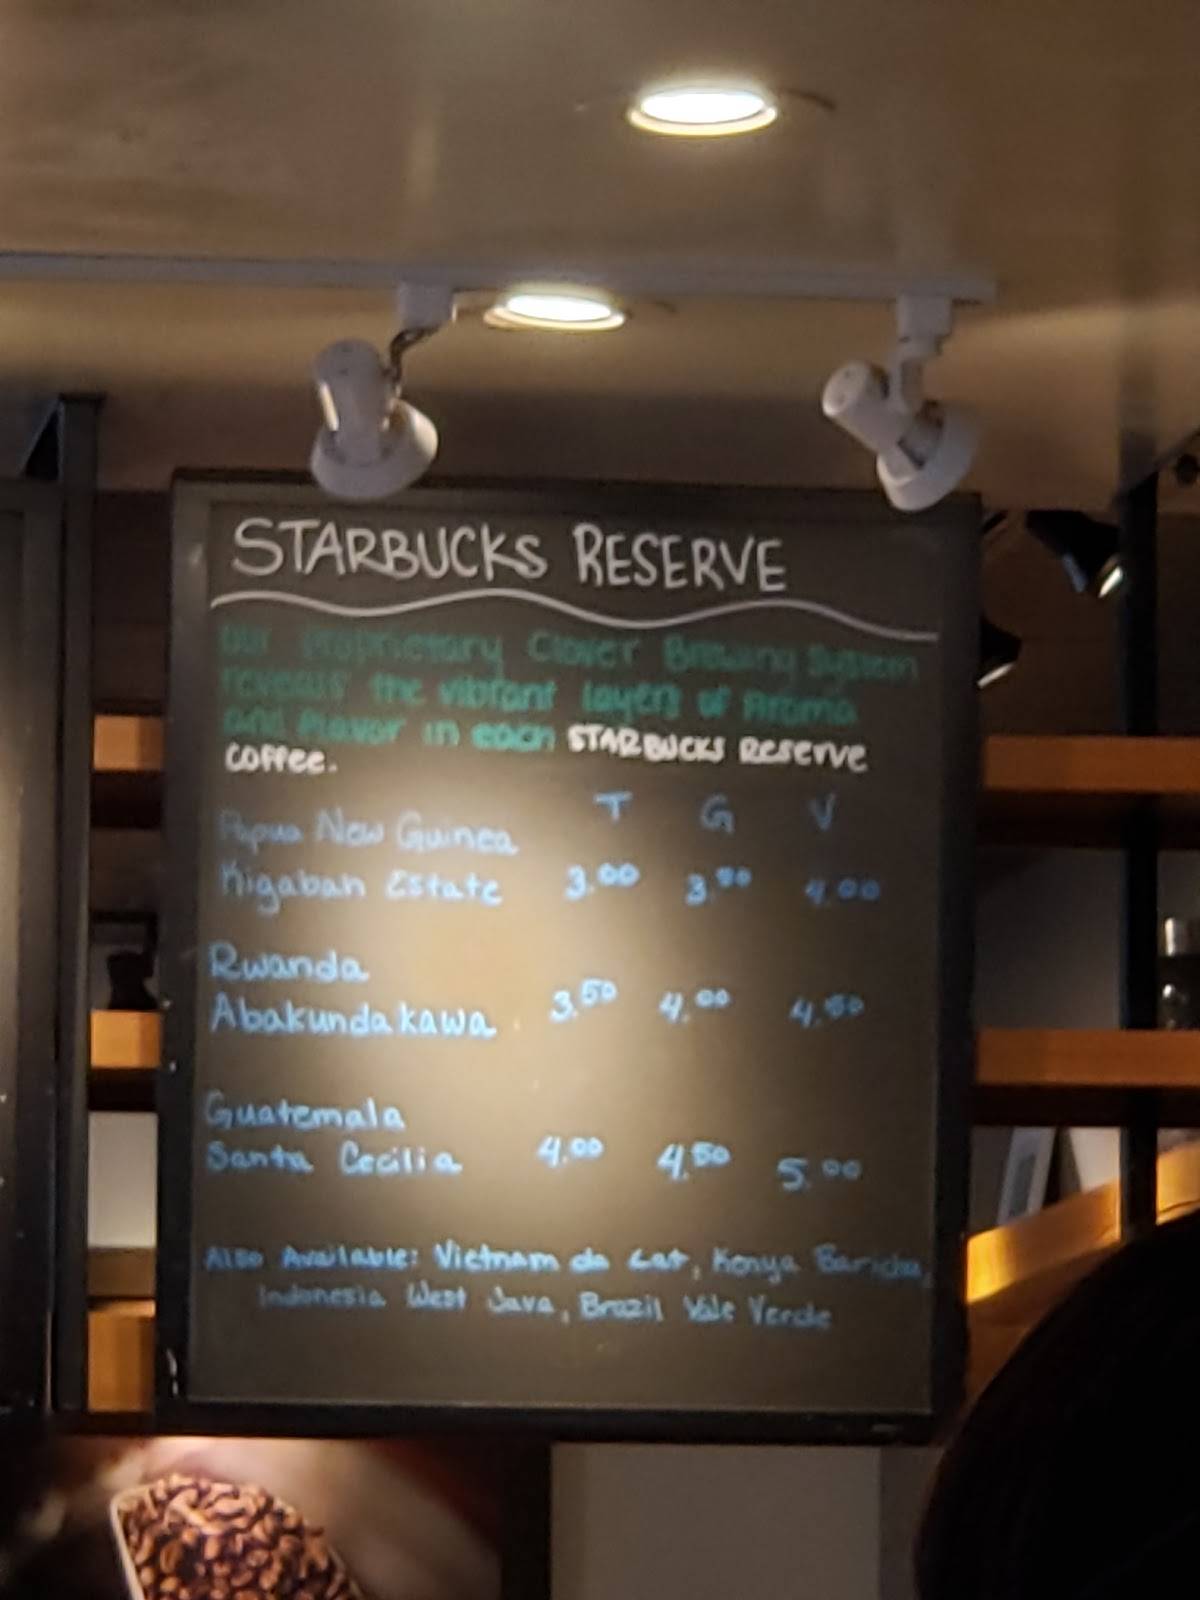 STARBUCKS RESERVE
Our Proprietary Clover Brewing System
reveals the vibrant layers of Aroma
and Flavor in each STARBUCKS Reserve
coffee.
T G V
Papua New Guinea
Kigabah Estate 3.00 3.50 4.00
Rwanda
Abakundakawa 3.50 4.00 4.50
Guatemala
Santa Cecilia 4.00 4.50 5.00
Also Available: Vietnam da Lat, Kenya
Indonesia West Java, Brazil Vale Verde